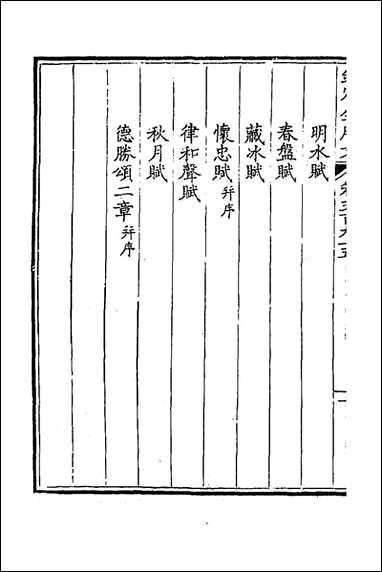 明水賦
春盤賦
藏冰賦
懷忠賦 幷序
律和聲賦
秋月賦
德勝頌二章 幷序